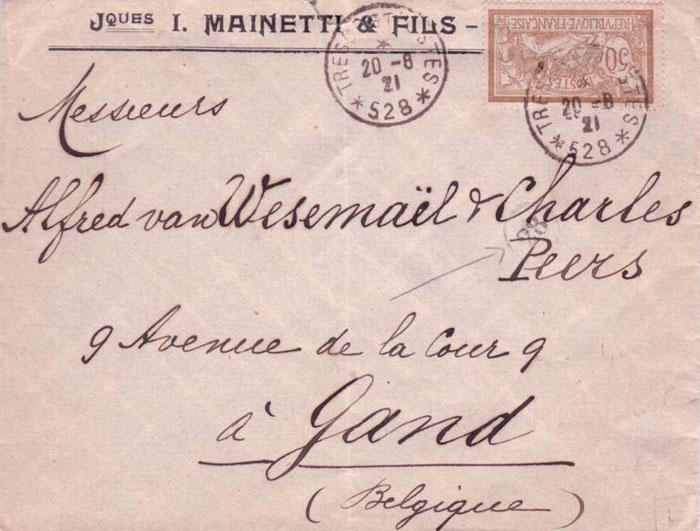 Jques I. MAINETTI & FILS -
TRESOR ET POSTES
20 -8
21
* 528 *
REPUBLIQUE FRANÇAISE
50
POSTES
20 -8
21
* 528 *
Messieurs
Alfred van Wesemaël & Charles
Peers
9 Avenue de la Cour 9
à Gand
(Belgique)